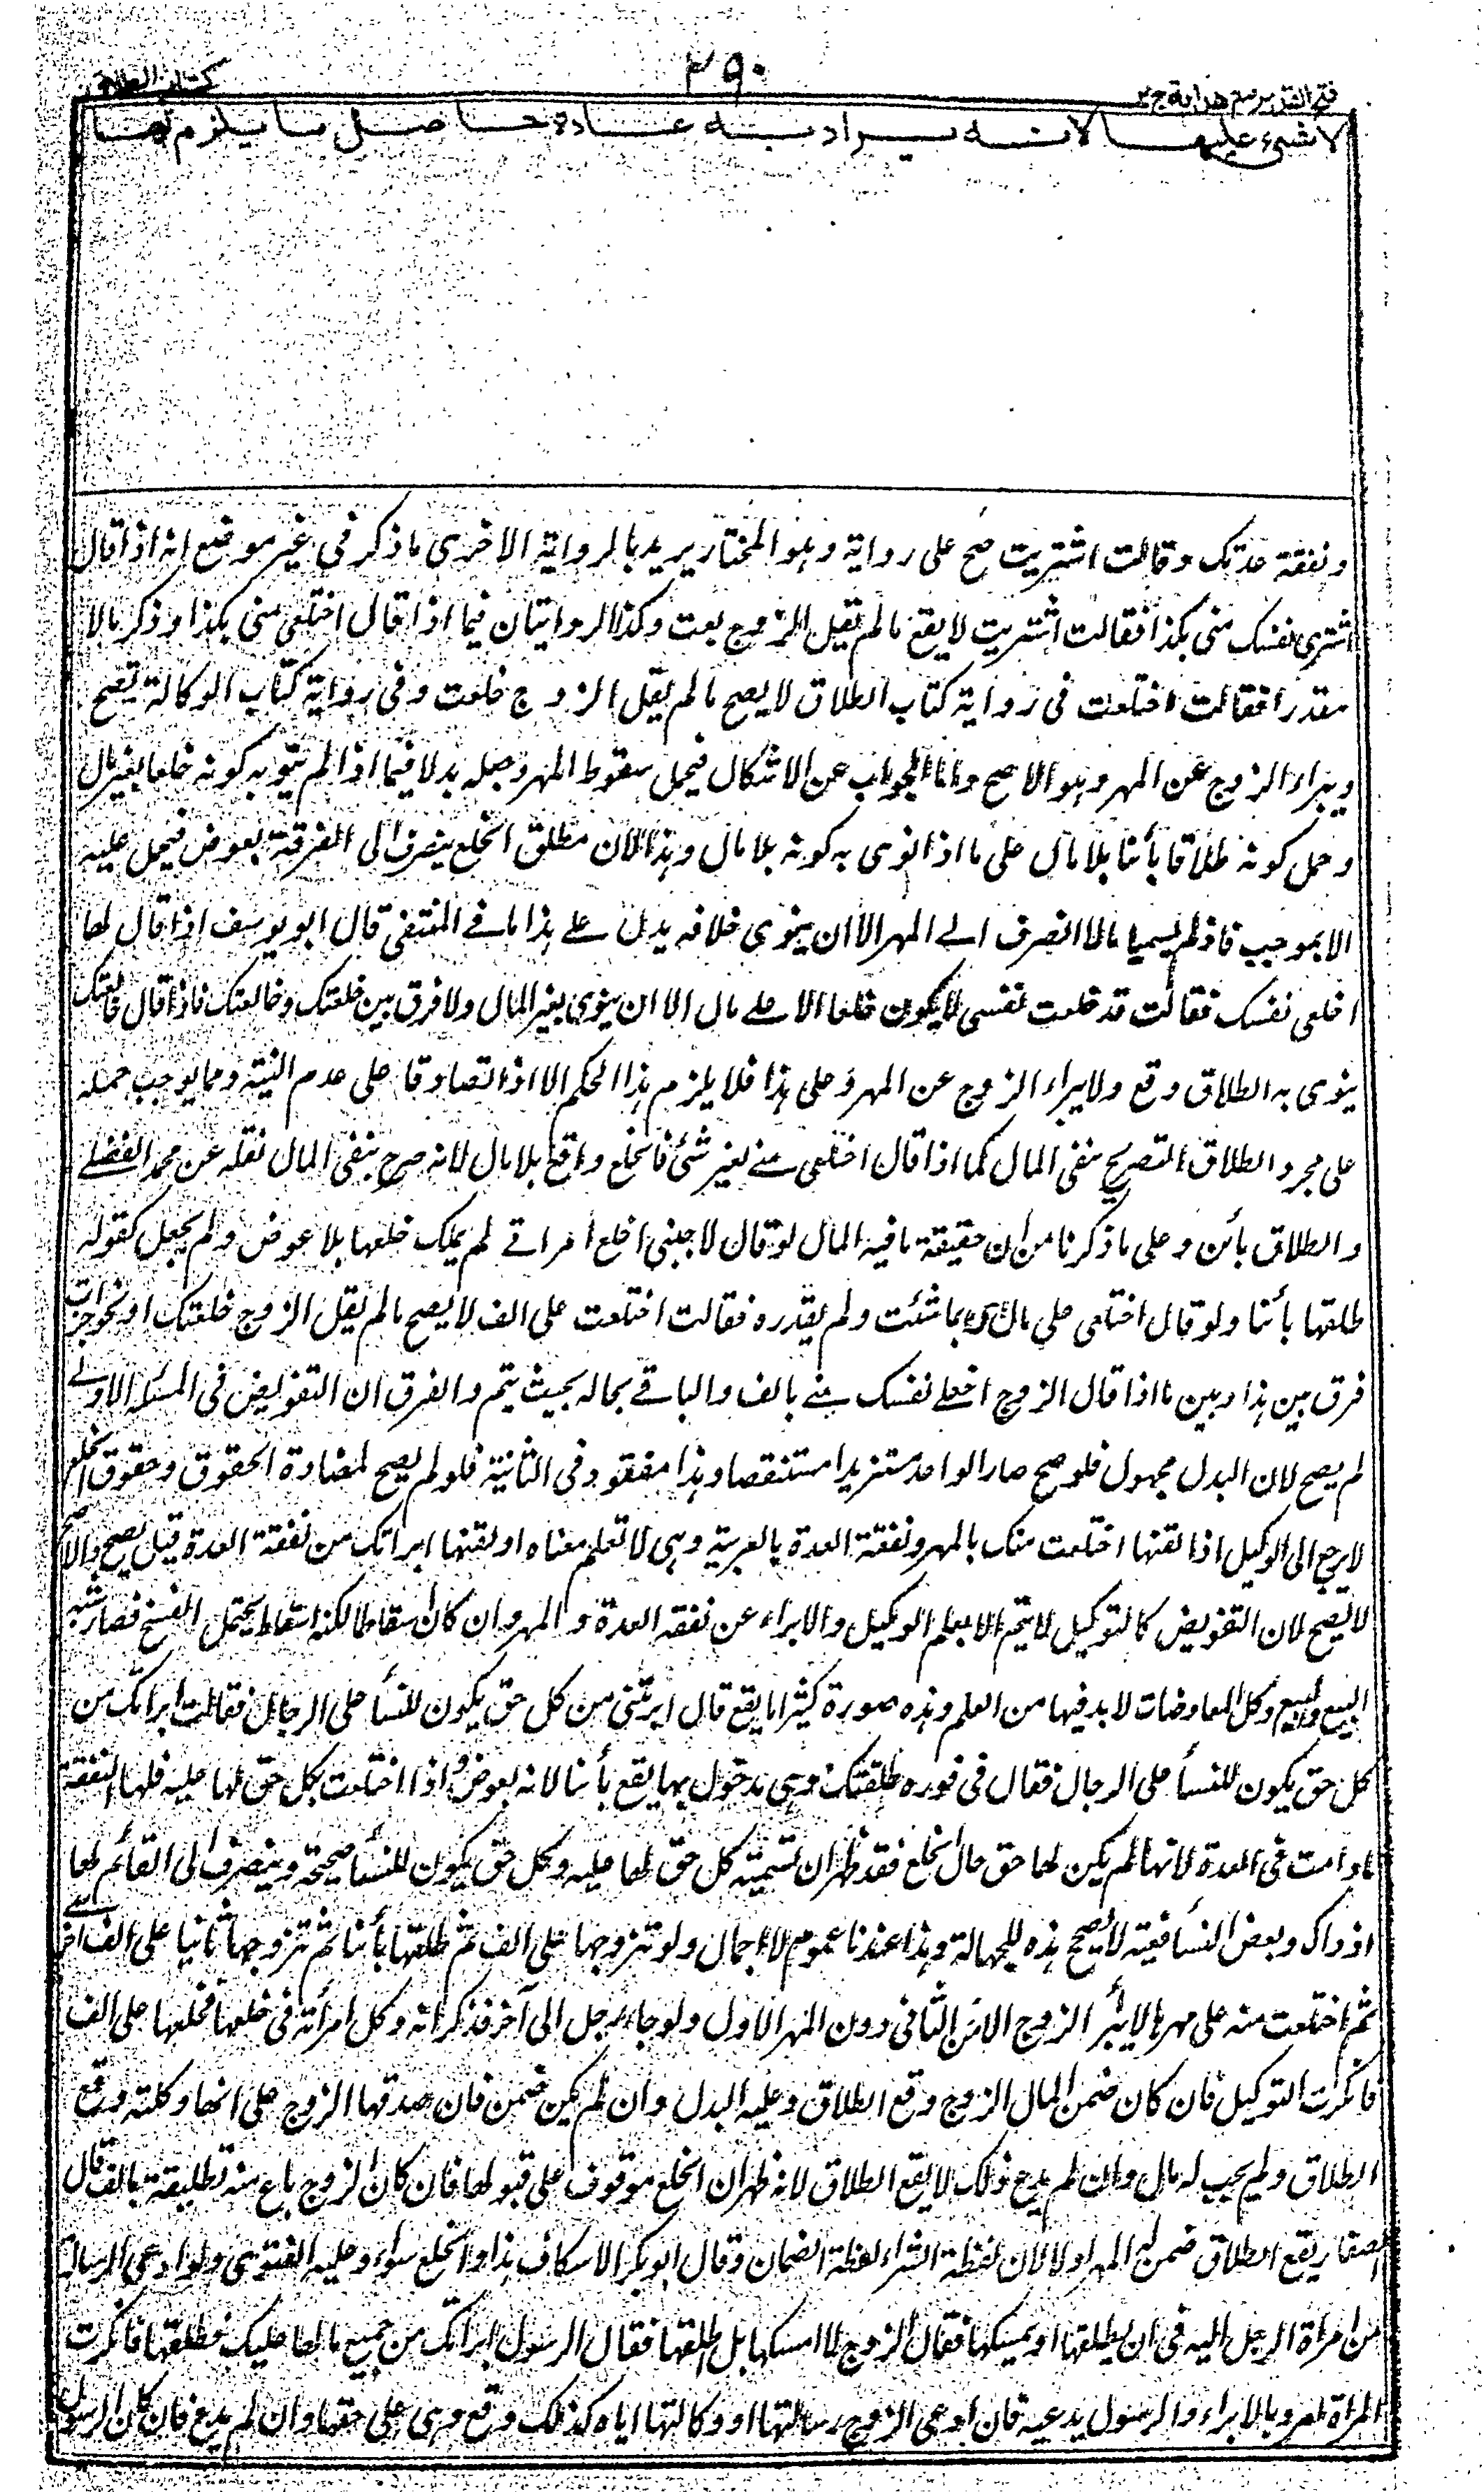 فتح القدير مع هداية ج ٢
٣٩٠
كتاب الطلاق
لا شيء عليها لانه يراد به عادة حاصل ما يلزم لها
ونفقة عدتك وقالت اشتريت صح على رواية وهو المختار يريد بالرواية الاخرى ما ذكر في غير موضع انه اذا قال
اشتري نفسك مني بكذا فقالت اشتريت لا يقع ما لم يقل الزوج بعت وكذا الروايتان فيما اذا قال اختلعي مني بكذا وذكر مالا
مقدرا فقالت اختلعت في رواية كتاب الطلاق لا يصح ما لم يقل الزوج خلعت وفي رواية كتاب الوكالة تصح
ويبراء الزوج عن المهر وهو الاصح واما الجواب عن الاشكال فيحمل سقوط المهر وجعله بدلا فيما اذا لم ينو به كونه خلعا بغير مال
وحمل كونه طلاقا بأئنا بلا مال على ما اذا نوى به كونه بلا مال وهذا لان مطلق الخلع ينصرف الى الفرقة بعوض فيحمل عليه
الا بموجب فاذا لم يسميا مالا انصرف الى المهر الا ان ينوى خلافه يدل على هذا ما في المنتقى قال ابو يوسف اذا قال لها
اخلعي نفسك فقالت قد خلعت نفسي لا يكون خلعا الا على مال الا ان ينوى بغير المال ولا فرق بين خلعتك وخالعتك فاذا قال خالعتك
ينوى به الطلاق وقع ولا يبراء الزوج عن المهر وعلى هذا فلا يلزم هذا الحكم الا اذا تصادقا على عدم النية ومما يوجب حمله
على مجرد الطلاق التصريح بنفي المال كما اذا قال اختلعي مني بغير شئ فالخلع واقع بلا مال لانه صرح بنفي المال نقله عن محمد الفضلي
والطلاق بأئن وعلى ما ذكرنا من ان حقيقة ما فيه المال لو قال لاجنبي اخلع امراتي لم يملك خلعها بلا عوض ولم يجعل كقوله
طلقها بأئنا ولو قال اختلعي على مال او بما شئت ولم يقدره فقالت اختلعت على الف لا يصح ما لم يقل الزوج خلعتك او نحو جزات
فرق بين هذا وبين ما اذا قال الزوج اخلعي نفسك مني بالف والباقي بحاله بحيث يتم والفرق ان التفويض في المسئلة الاولى
لم يصح لان البدل مجهول فلو صح صار الواحد مستزيدا مستنقصا وهذا مفقود في الثانية فلو لم يصح لمضادة الحقوق وحقوق الخلع
لا يرجع الى الوكيل اذا لقنها اختلعت منك بالمهر ونفقة العدة بالعربية وهي لا تعلم معناه او لقنها ابراتك من نفقة العدة قيل يصح والاصح
لا يصح لان التفويض كالتوكيل لا يتم الا بعلم الوكيل والابراء عن نفقة العدة والمهر وان كان اسقاطا لكنه اسقاط يحتمل الفسخ فصار شبه
البيع والبيع وكل المعاوضات لا بد فيها من العلم وهذه صورة كثيرا ما يقع قال ابرئتني من كل حق يكون للنسأ على الرجال فقالت ابراتك من
كل حق يكون للنسأ على الرجال فقال في فوره طلقتك وهي مدخول بها يقع بأئنا لانه بعوض واذا اختلعت بكل حق لها عليه فلها النفقة
ما دامت في العدة لانها لم يكن لها حق حال الخلع فقد ظهر ان تسمية كل حق لها عليه وكل حق يكون للنسأ صحيحة وينصرف الى القائم لها
اذ ذاك وبعض الشأفعية لا يصح هذه للجهالة وهذا عندنا عموم لا اجمال ولو تزوجها على الف ثم طلقها بأئنا ثم تزوجها ثانيا على الف اخرى
ثم اختلعت منه على مهرها لا يبرأ الزوج الا من الثاني دون المهر الاول ولو جاء رجل الى آخر فذكر انه وكل امرأته في خلعها فخلعها على الف
فانكرت التوكيل فان كان ضمن المال الزوج وقع الطلاق وعليه البدل وان لم يكن ضمن فان صدقها الزوج على انها وكلته وقع
الطلاق ولم يجب له مال وان لم يدع ذلك لا يقع الطلاق لانه ظهر ان الخلع موقوف على قبولها فان كان الزوج باع منه تطليقة بالف قال
الصفار يقع الطلاق ضمن له المهر او لا لان لفظة الشراء لفظة الضمان وقال ابو بكر الاسكاف هذا والخلع سواء وعليه الفتوى ولو ادعى الرسالة
من امراة الرجل اليه في ان يطلقها او يمسكها فقال الزوج لا امسكها بل اطلقها فقال الرسول ابراتك من جميع ما لها عليك فطلقها فانكرت
المراة امره بالابراء والرسول يدعيه فان ادعى الزوج رسالتها او وكالتها اياه كذلك وقع وهي على حقها وان لم يدع فان كان الرسول